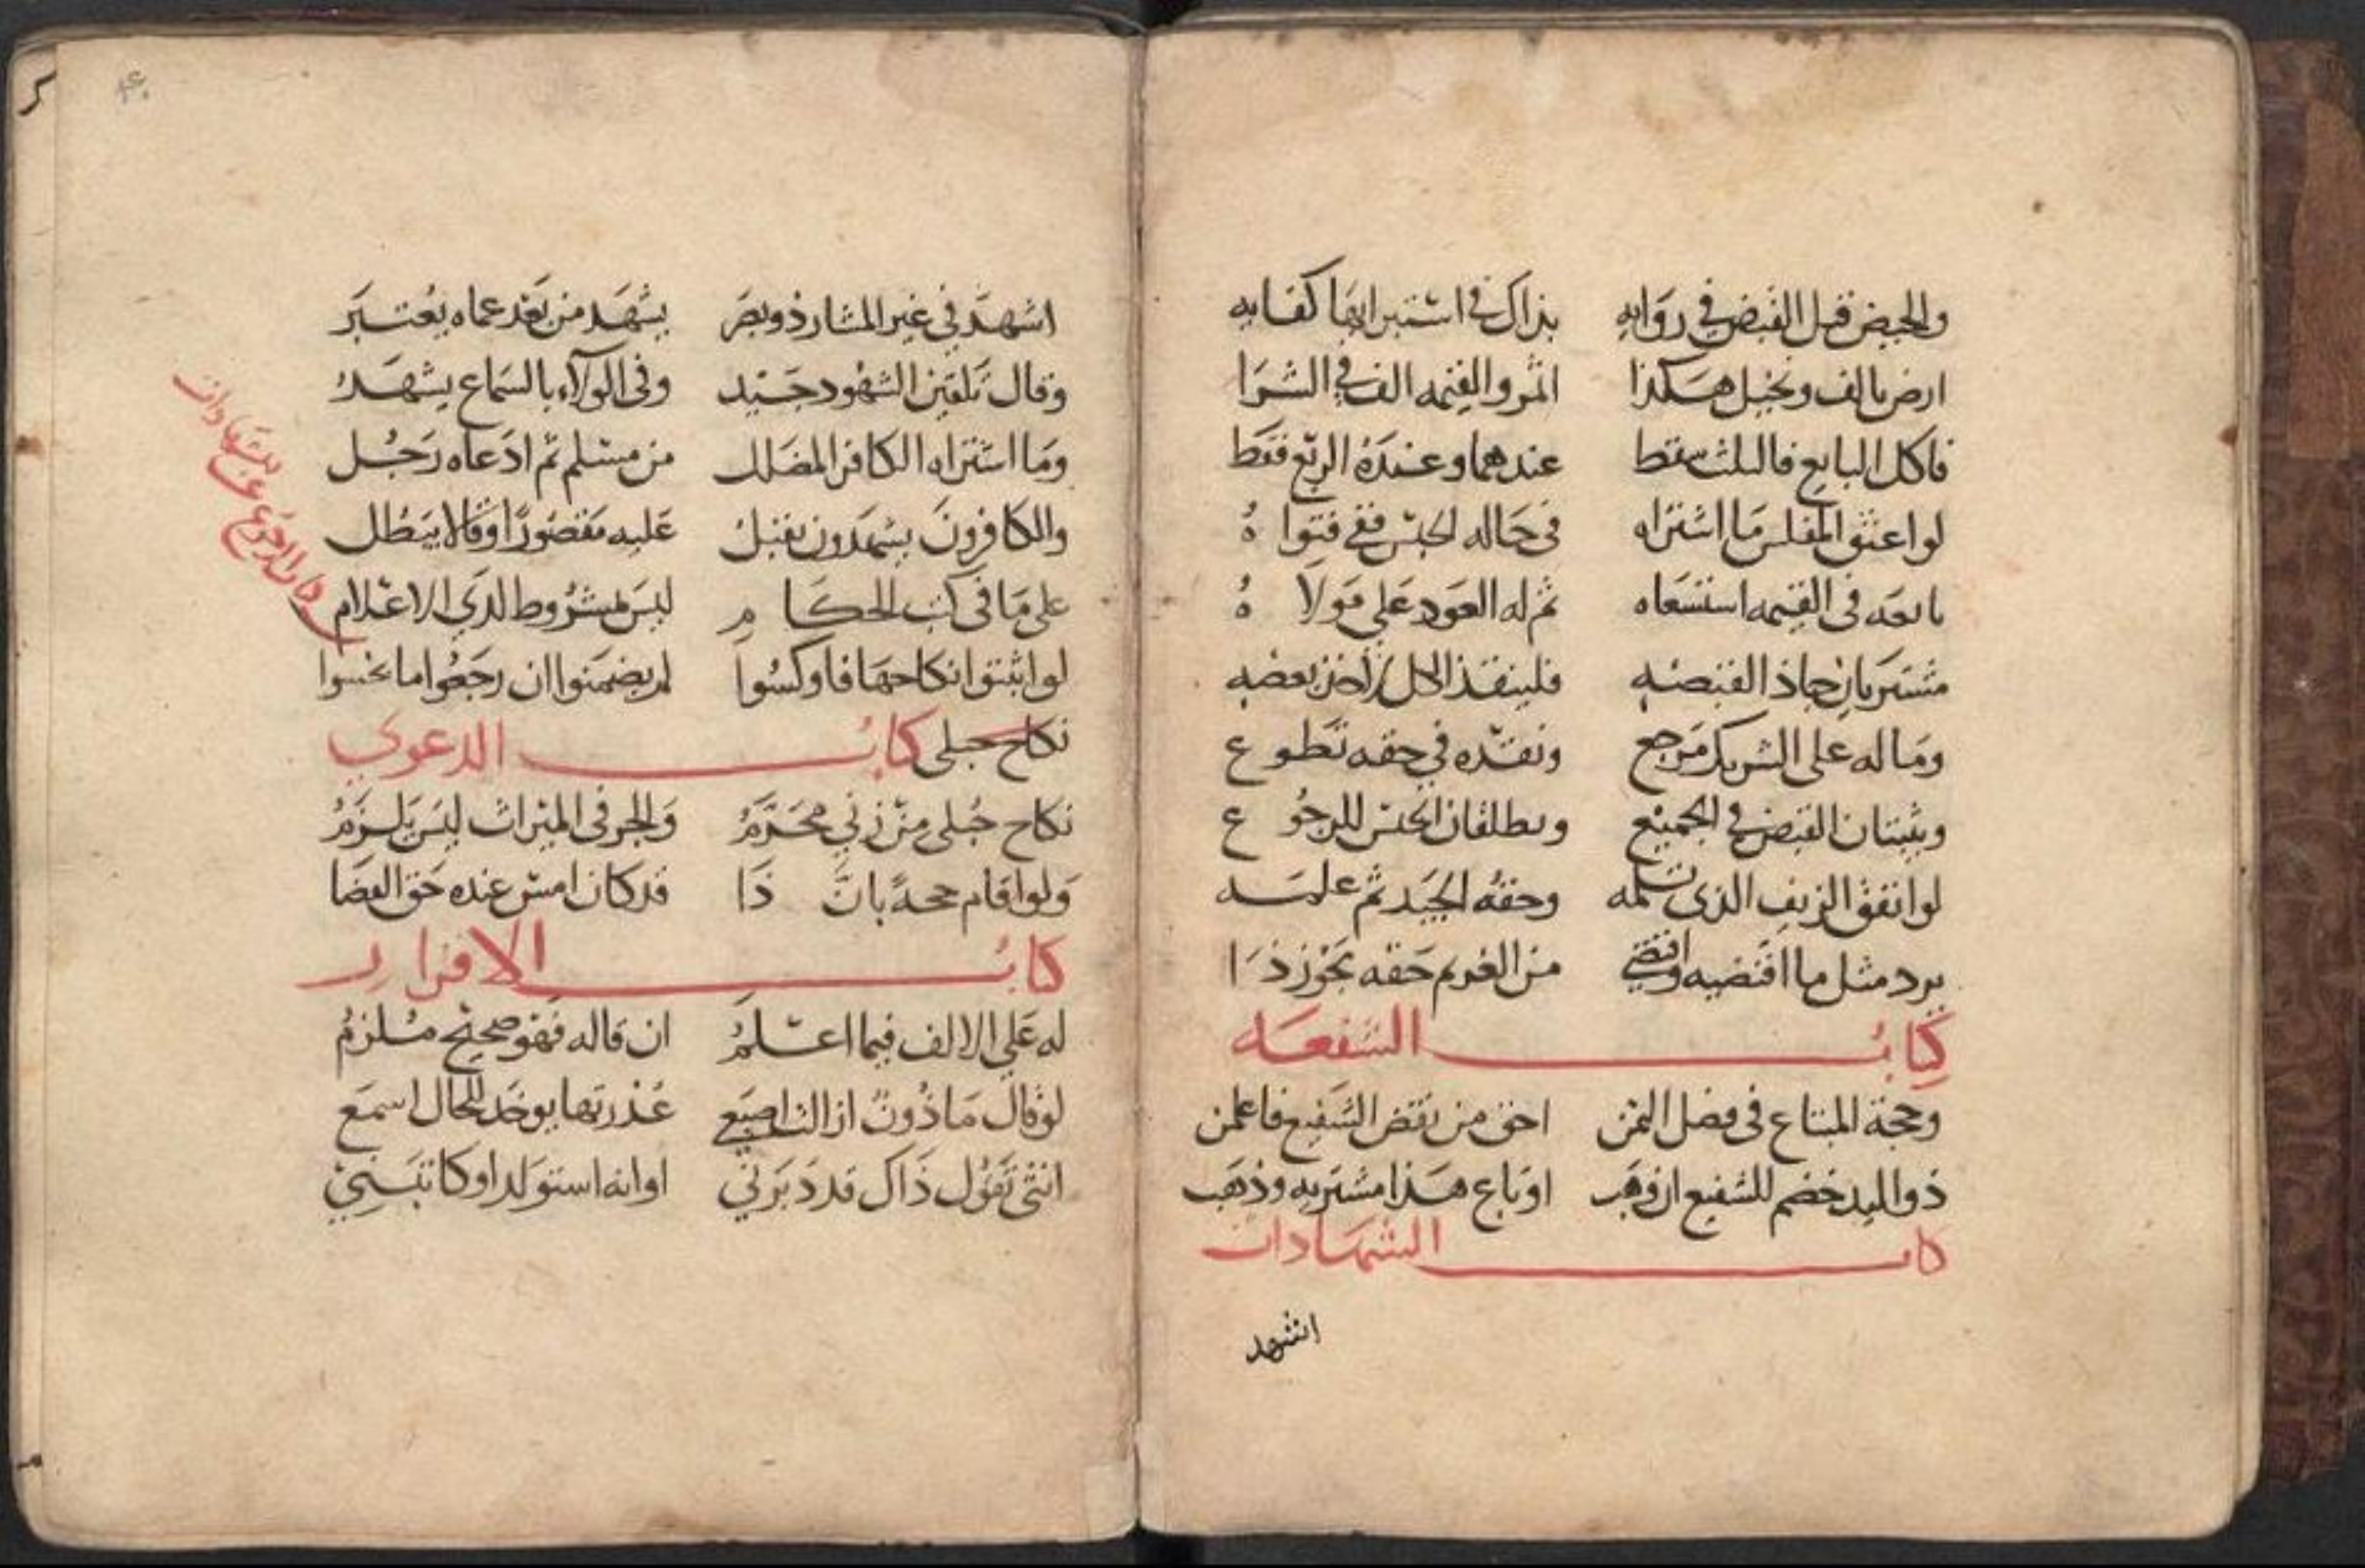 والحيض قبل القبض في روايه بذاك في استبرايها كفايه
ارض بالف ونخيل هكذا اثمر والقيمه الف في الشرا
فاكل البايع فالثلث سقط عندهما وعنده الربع فقط
لو اعتق المفلس ما اشتراه في حاله الحبس ففي فتواهُ
بايعه في القيمه استسعاه ثم له العود على مولاهُ
مشتريان جاذ القبضه فلينقذ الكل اخذ بعضه
وماله على الشريك مرجع ونقده في حقه تطوع
ويثبتان القبض في الجميع ويطلقان الحبس للرجوع
لو انفق الزيف الذي تسلمه وحقه الجيد ثم علمه
يرد مثل ما اقتضيه واقتضي من الغريم حقه تجوز ذا
كتاب الشفعه
وحجة المبتاع في فضل الثمن احق من نقض الشفيع فاعلمن
ذو اليد خصم للشفيع ان وهب او باع هذا مشتريه وذهب
كتاب الشهادات
اشهد
۴۰
اشهد في غير المشار ذو بصر يشهد من بعد عماه يعتبر
وقال تلقين الشهود جيد وفي الولاء بالسماع يشهد
وما اشتراه الكافر المضلل من مسلم ثم ادعاه رجل
والكافرون يشهدون نقبل عليه مقصورا وقالا يبطل
على ما في كتب الحكام ليس بمشروط لدي الاعلام
كتاب الرجوع عن الشهادات
لو اثبتوا انكاحها فاوكسوا لم يضمنوا ان رجعوا ما بخسوا
نكاح حبلى كتاب الدعوي
نكاح حبلى من زني محرم والجر في الميراث ليس يلزم
ولو اقام حجة بان ذا قد كان امس عنده حق القضا
كتاب الاقرار
له علي الالف فيما اعلم ان قاله فهو صحيح ملزم
لو قال ماذون ازالت اصبعي عذرتها يوخذ للحال اسمع
انثى تقول ذاك قد دبرني او انه استولد او كاتبني